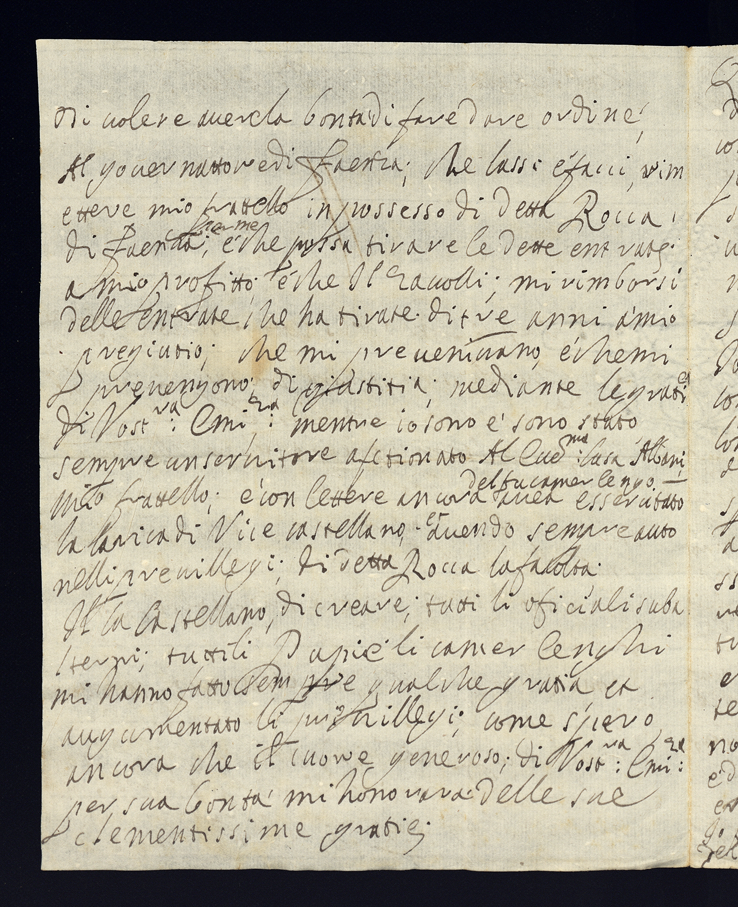 di uolere auer la bonta di fare dare ordine,
Al gouernattore di Faenza; che lassi é facci, rim
ettere mio frattello in possesso di detta Rocca,
per me
di Faenza; é che possa tirare le dette entrate
a mio profitto; é che Il Rauolli; mi rimborsi
delle entrate che ha tirate di tre anni á mio
pregiutio; che mi preueniuano, é che mi
preuengono di giustitia; mediante le grati
di Vost:ra Emi:za mentre io sono é sono stato
sempre un seruitore afetionato Al Card Albani
del fu camerlengo
mio frattello; é con lettere ancora auea essercitato
la carica di Vice castellano, et auendo sempre auto
nelli preuillegi; di detta Rocca la facolta
Il Castellano, di creare; tutti li oficiali suba
lterni; tutti li Papi é li camerlenghi
mi hanno fatto sempre qualche gratia et
augumentato li preuillegi; come spero
ancora che il cuore generoso; di Vost:ra Emi:za
per sua bonta mi honorara delle sue
clementissime gratie;